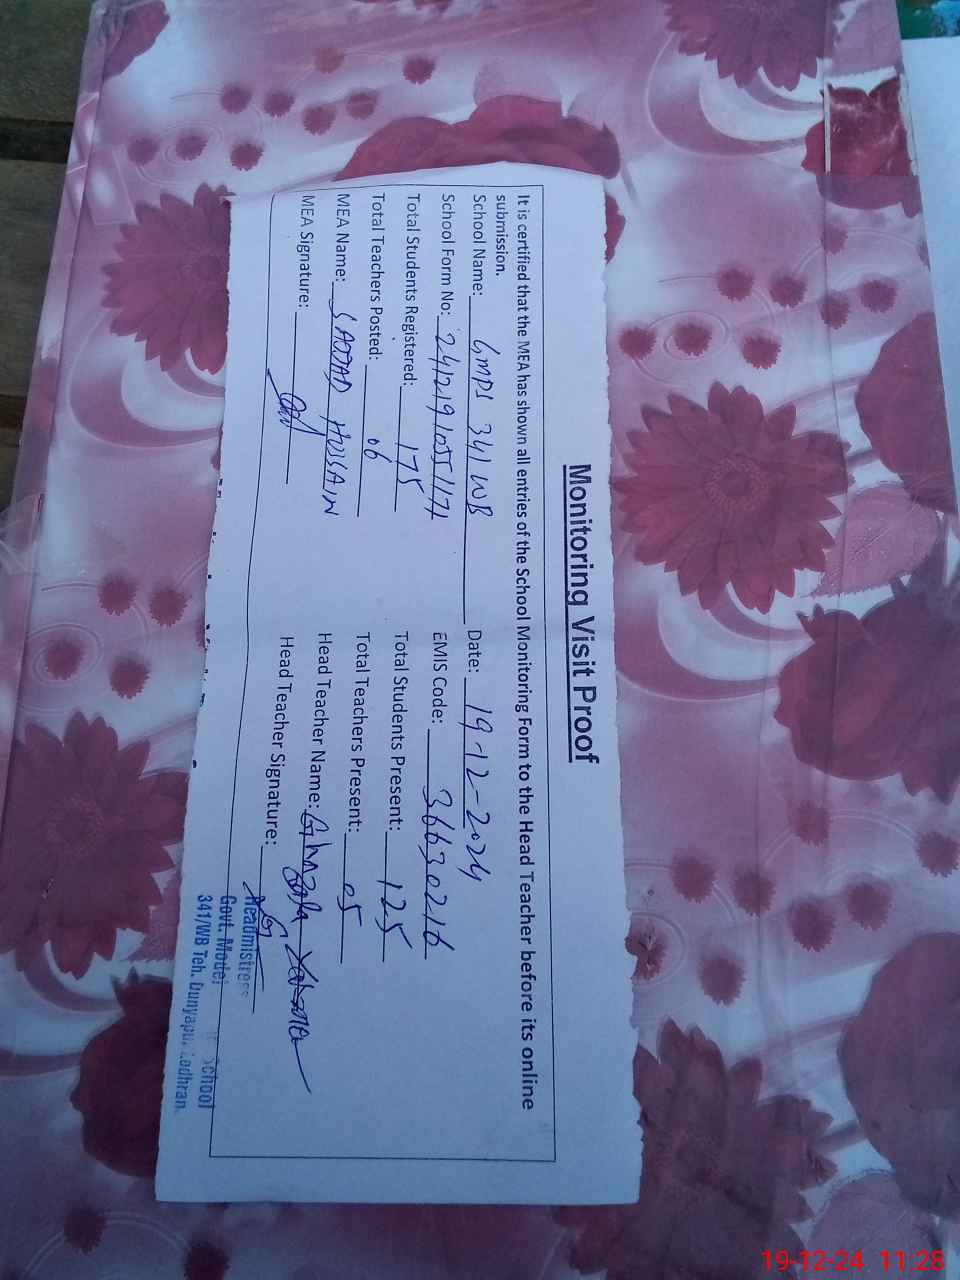 Monitoring Visit Proof
It is certified that the MEA has shown all entries of the School Monitoring Form to the Head Teacher before its online
submission.
School Name: GMPS 341 WB Date: 19-12-2024
School Form No: EMIS Code: 36630216
Total Students Registered: 175 Total Students Present: 125
Total Teachers Posted: 06 Total Teachers Present: 05
MEA Name: SAJJAD HUSSAIN Head Teacher Name: Ghazala
MEA Signature: Head Teacher Signature:
Headmistress
Govt. Model School
341/WB Teh. Dunyapur Lodhran
19-12-24 11:28